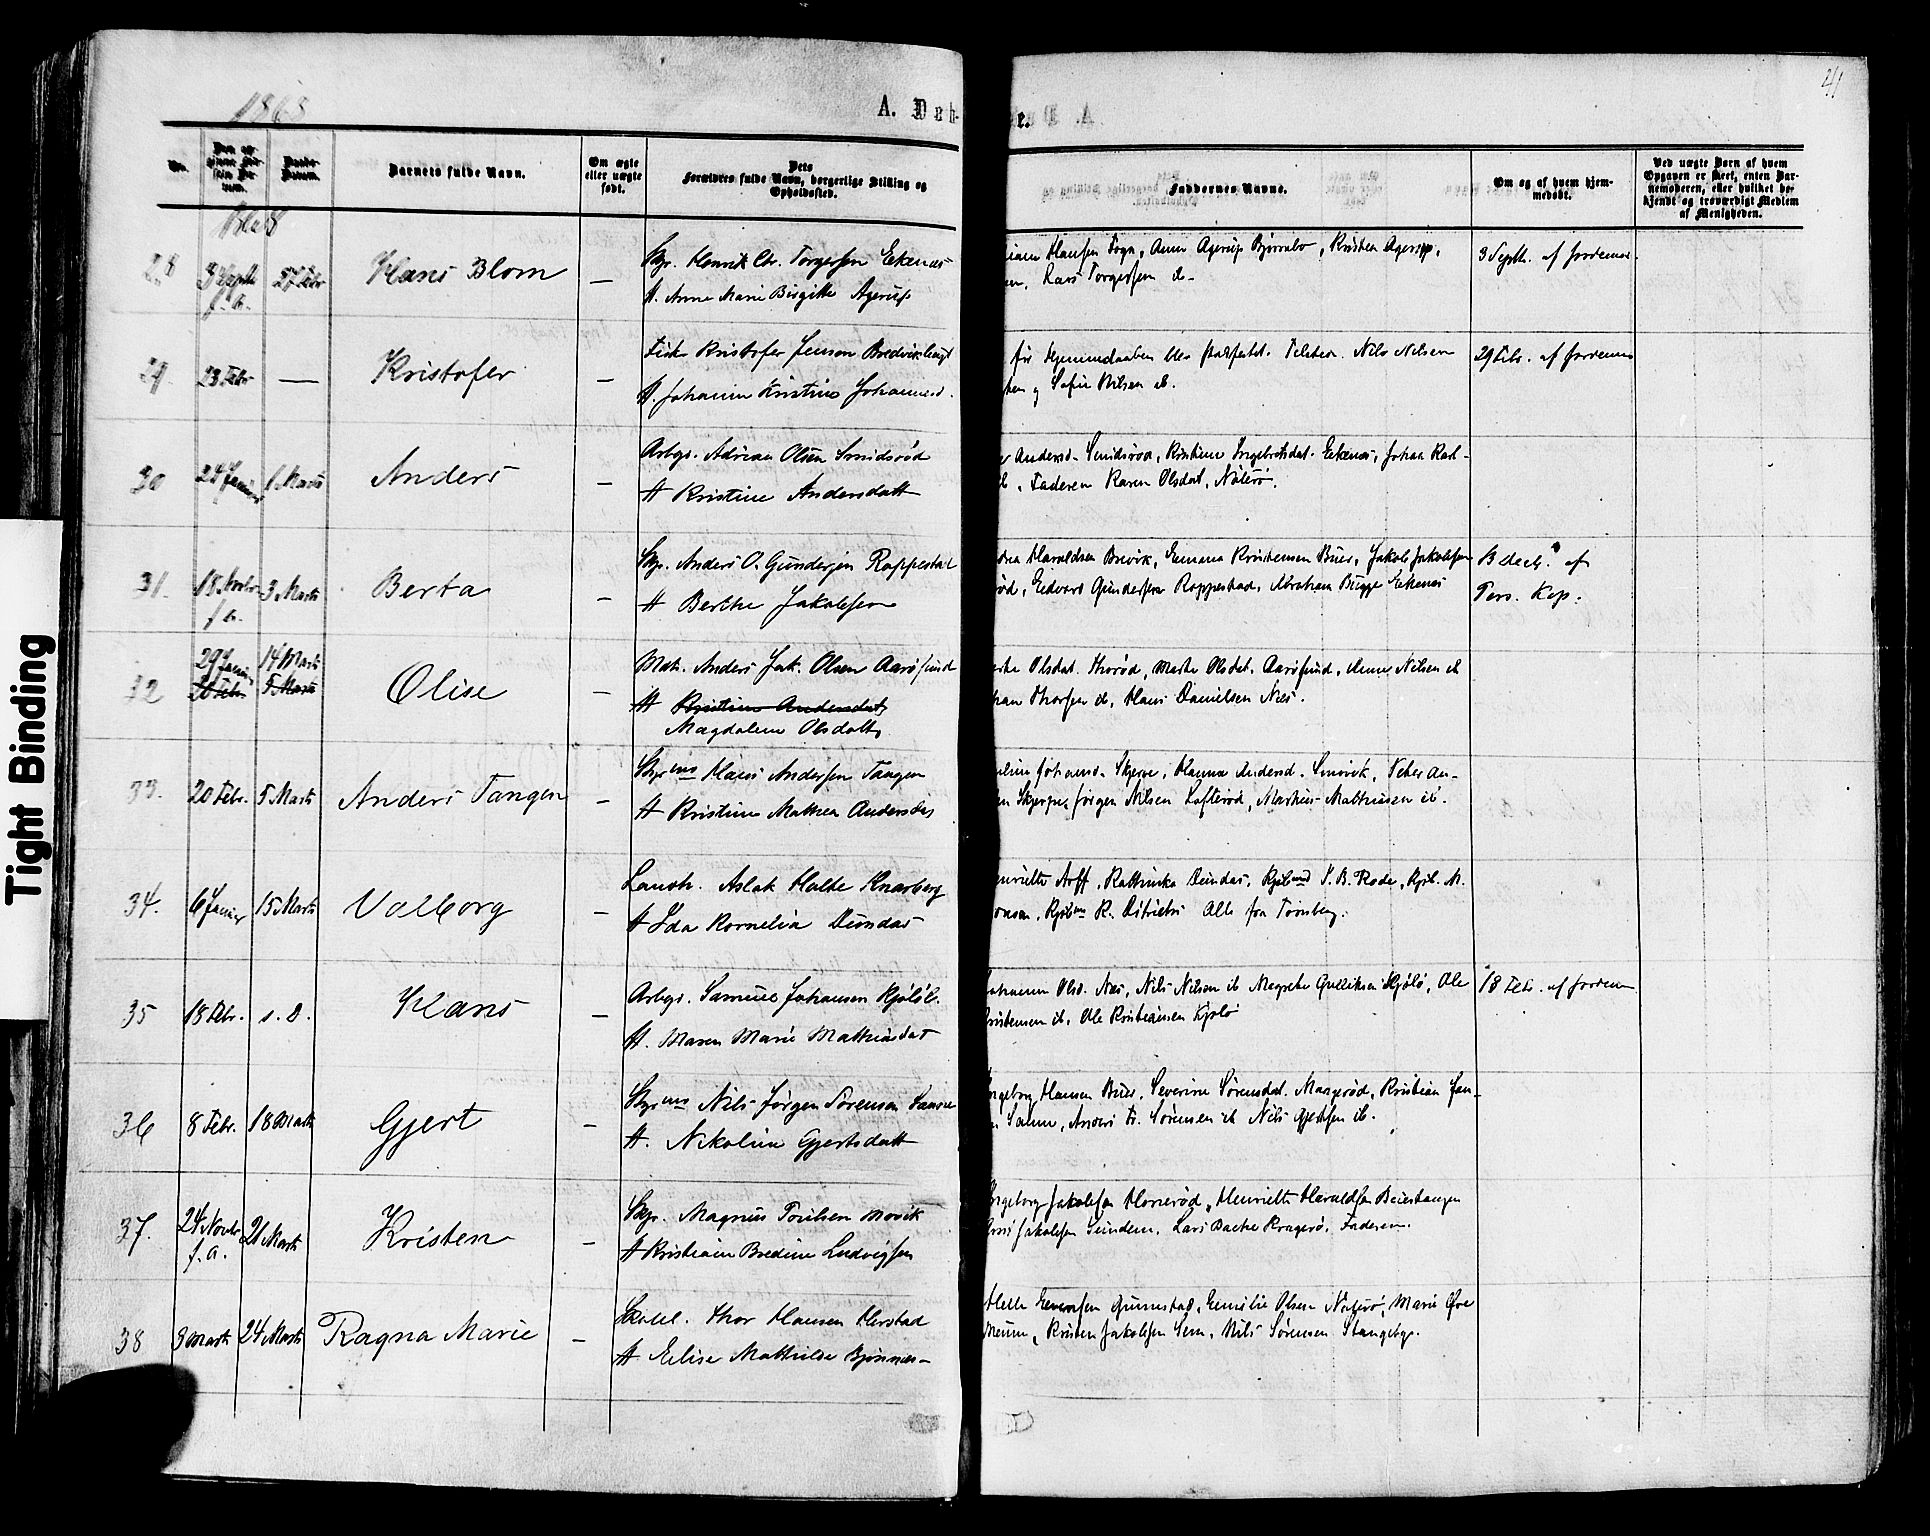 1868
A. Døb-
e.
41
Tight Binding
No.
Barnets fulde Navn.
Om ægte eller uægte født.
Dets Forældres fulde Navn, borgerlige Stilling og Opholdssted.
Faddernes Navne.
Om og af hvem hjemmedøbt.
Ved uægte Børn af hvem Opgaven er skeet, enten Barnemoderen, eller hvilket bekjendt og troværdigt Medlem af Menigheden.
28 3 Septb. f. A. 27 Febr Hans Blom — Skpr. Henrik Chr. Torgersen Ekenes
H. Anne Marie Birgitte Agerup
Hansen Sogn, Anne Agerup Bjørnebo, Kristen Agerup,
Lars Torgersen ib.
3 Septb. af Jordemor
29. 23 Febr — Kristofer — Kristofer Jenson
H. Johanne Kristine Johannesd.
for Hjemmedaaben blev stadfæstet. Nils Nilsen
og Sofie Nilsen ib.
29 Febr. af Jordemor
30 24 Januar 1 Marts Anders — Arbgs. Adrian Olsen Smidsrød
H Kristine Andersdatt
Andersd. Smidsrød, Kristine Ingebretsdat. Ekenes, Johan Karl-
Faderen Karen Olsdat, Nøterø.
31. 18 Novbr f. A. 3 Marts Berta — Skp. Anders O. Gundersen Roppestad
H Berthe Jakobsen
Haraldsen Brevik, Emma Kristensen Buer, Jakob Jakobsen
Edvard Gundersen Roppestad, Abraham Bugge Ekenes
B Decb. af
Pers. Kap.
32 29 Januar 14 Marts Olise — Mat. Anders Jak. Olsen Aarøsund
20 Febr. 5 Marts
H Kristine Andersdat,
Magdalene Olsdatt,
Olsdat. Thorød, Marthe Olsdat. Aarøsund, Anne Nilsen ib
Thorsen ib, Hans Danielsen Næs.
33. 20 Febr. 5 Marts Anders Tangen — Skprms Hans Andersen Tangen
H Kristine Mathea Andersdat,
Johansd. Skjerve, Hanna Andersd. Smørik, Peter An-
Skjerve, Jørgen Nilsen Lofterød, Markus Mathiasen ib.
34. 6 Januar 15 Marts Valborg — Landh. Aslak Holte Knarberg
H Ida Kornelia Dundas
Arff, Kathinka Dundas, Kjøbmd P. B. Rode, Kjøb. M.
Kjøbm R. Ditrichs Alle fra Tønsberg.
35 18 Febr. s. D. Hans — Arbgs. Samuel Johansen Kjøløl.
H. Maren Marie Mathiasdat
Olsd. Næs, Nils Nilsen ib Magrethe Gulliksen Kjøløl, Ole
Kristensen ib, Ole Kristiansen Kjøløl
18 Febr. af Jordemor
36 8 Febr. 18 Marts Gjert — Skprms Nils Jørgen Sørensen
H. Nikoline Gjertsdatt
Ingeborg Hansen Buer, Severine Sørensdat. Maagerød, Kristian Jan-
Anders Fr. Sørensen ib Nils Gjertsen ib.
37. 24 Novbr f. A. 21 Marts Kristen — Skp. Magnus Poulsen Movik
H Kristiane Bredine Ludvigsen
Ingeborg Jakobsen Horrerød, Henriette Haraldsen Beiertangen
Jakobsen Sundene, Lars Bache Kragerø, Faderen.
38 3 Marts 24 Marts Ragna Marie — Thor Hansen Herstad
H Elise Mathilde Bjønnes
Helle Evensen Gunnestad, Emilie Olsen Nøterø, Marie Øre
Kristen Jakobsen Sem, Nils Sørensen Stangeby.